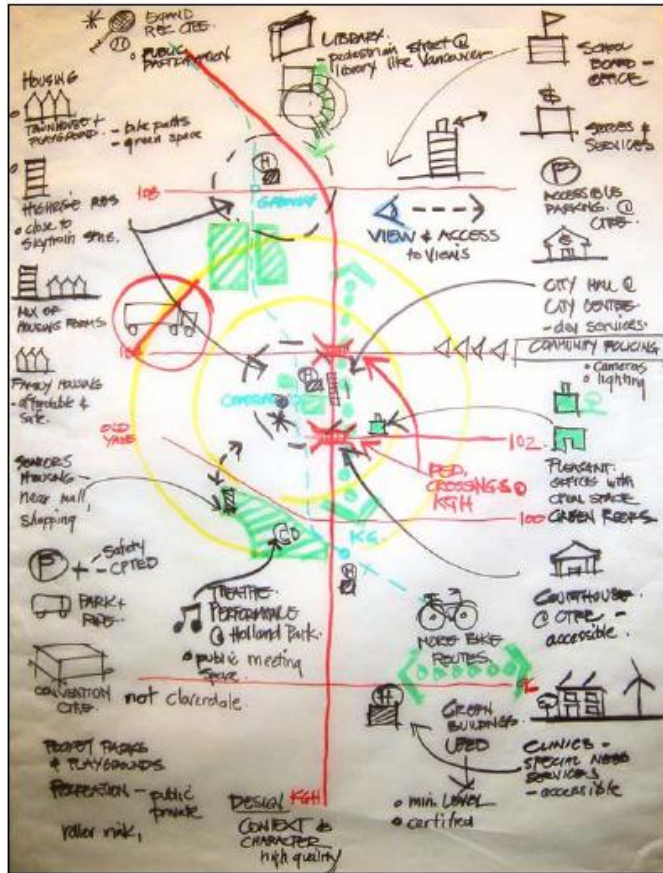 EXPAND
REC CTRE.
PUBLIC
PARTICIPATION
LIBRARY.
- pedestrian street @
library like Vancouver
SCHOOL
BOARD -
OFFICE
HOUSING
TOWNHOUSE +
PLAYGROUND.
- bike paths
- green space
$
SERVICES
HIGHRISE RES
close to
Skytrain
108
H
GATEWAY
VIEW & ACCESS
to VIEWS
P
ACCESSIBLE
PARKING @
CTRE
CITY HALL @
CITY CENTRE
- day services.
MIX OF
HOUSING FORMS
COMMUNITY POLICING
cameras
lighting
FAMILY HOUSING
- affordable &
safe.
H
CENTRAL
OLD
YALE
102
PED.
CROSSINGS @
KGH
PLEASANT
OFFICES with
OPEN SPACE
GREEN ROOFS
100
SENIORS
HOUSING -
near mall,
shopping
KG
H
P + - Safety
- CPTED
PARK +
RIDE
THEATRE
PERFORMANCE
@ Holland Park.
public meeting
space
COURTHOUSE
@ CTRE -
accessible.
MORE BIKE
ROUTES.
96
CONVENTION
CTRE.
not cloverdale
H
GREEN
BUILDINGS
USED
min. LEVEL
certified
CLINICS -
SPECIAL NEED
SERVICES
- accessible
POCKET PARKS
& PLAYGROUNDS
RECREATION - public
private
roller rink,
DESIGN
KGH
CONTEXT &
CHARACTER
high quality